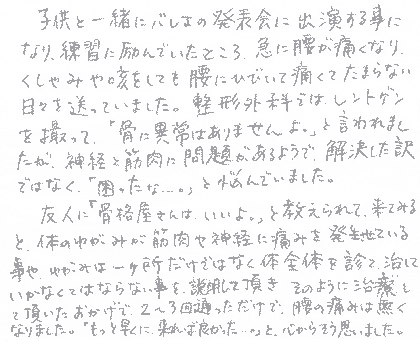 子供と一緒にバレエの発表会に出演する事に
なり、練習に励んでいたところ、急に腰が痛くなり、
くしゃみや咳をしても腰にひびいて痛くてたまらない
日々を送っていました。整形外科では、レントゲン
を撮って、「骨に異常はありませんよ。」と言われまし
たが、神経と筋肉に問題があるようで、解決した訳
ではなく、「困ったな…。」と悩んでいました。
友人に「骨格屋さんは、いいよ。」と教えられて、来てみる
と、体のゆがみが筋肉や神経に痛みを発生させている
事や、ゆがみは一ヶ所だけではなく体全体を診て、治して
いかなくてはならない事を、説明して頂き、そのように治療し
て頂いたおかげで、2〜3回通っただけで、腰の痛みは無く
なりました。「もっと早くに、来れば良かった…。」と、心からそう思いました。